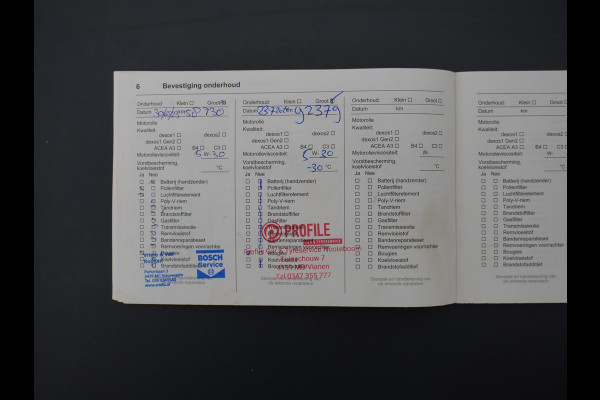 6 Bevestiging onderhoud
Onderhoud: Klein Groot
Datum km 730
Motorolie
Kwaliteit:
dexos1 dexos2
dexos1 Gen2
ACEA A3 B4 C3
Motorolieviscositeit: 5 W-30
Vorstbescherming, koelvloeistof °C
Ja Nee
Batterij (handzender)
Pollenfilter
Luchtfilterelement
Poly-V-riem
Tandriem
Brandstoffilter
Gasfilter
Transmissieolie
Remvloeistof
Bandenreparatieset
Remvoeringen voor/achter
Bougies
Koelvloeistof
Brandstofadditief
BOSCH
Service
Onderhoud: Klein Groot
Datum 92379
Motorolie
Kwaliteit:
dexos1 dexos2
dexos1 Gen2
ACEA A3 B4 C3
Motorolieviscositeit: 5 W-20
Vorstbescherming, koelvloeistof -30 °C
Ja Nee
Batterij (handzender)
Pollenfilter
Luchtfilterelement
Poly-V-riem
Tandriem
Brandstoffilter
Gasfilter
Transmissieolie
PROFILE
Bougies
Koelvloeistof
Vianen
Tel 0347 355 777
Onderhoud: Klein Groot
Datum km
Motorolie
Kwaliteit:
dexos1 dexos2
dexos1 Gen2
ACEA A3 B4 C3
Motorolieviscositeit: W-
Vorstbescherming, koelvloeistof °C
Ja Nee
Batterij (handzender)
Pollenfilter
Luchtfilterelement
Poly-V-riem
Tandriem
Brandstoffilter
Gasfilter
Transmissieolie
Remvloeistof
Bandenreparatieset
Remvoeringen voor/achter
Bougies
Koelvloeistof
Brandstofadditief
Stempel en handtekening van
de erkende reparateur
Onderhoud: Klein
Datum km
Motorolie
Kwaliteit:
dexos1
dexos1 Gen2
ACEA A3 B4
Motorolieviscositeit: W-
Vorstbescherming, koelvloeistof
Ja Nee
Batterij (handzender)
Pollenfilter
Luchtfilterelement
Poly-V-riem
Tandriem
Brandstoffilter
Gasfilter
Transmissieolie
Remvloeistof
Bandenreparatieset
Remvoeringen voor/achter
Bougies
Koelvloeistof
Brandstofadditief
Stempel en handtekening van
de erkende reparateur